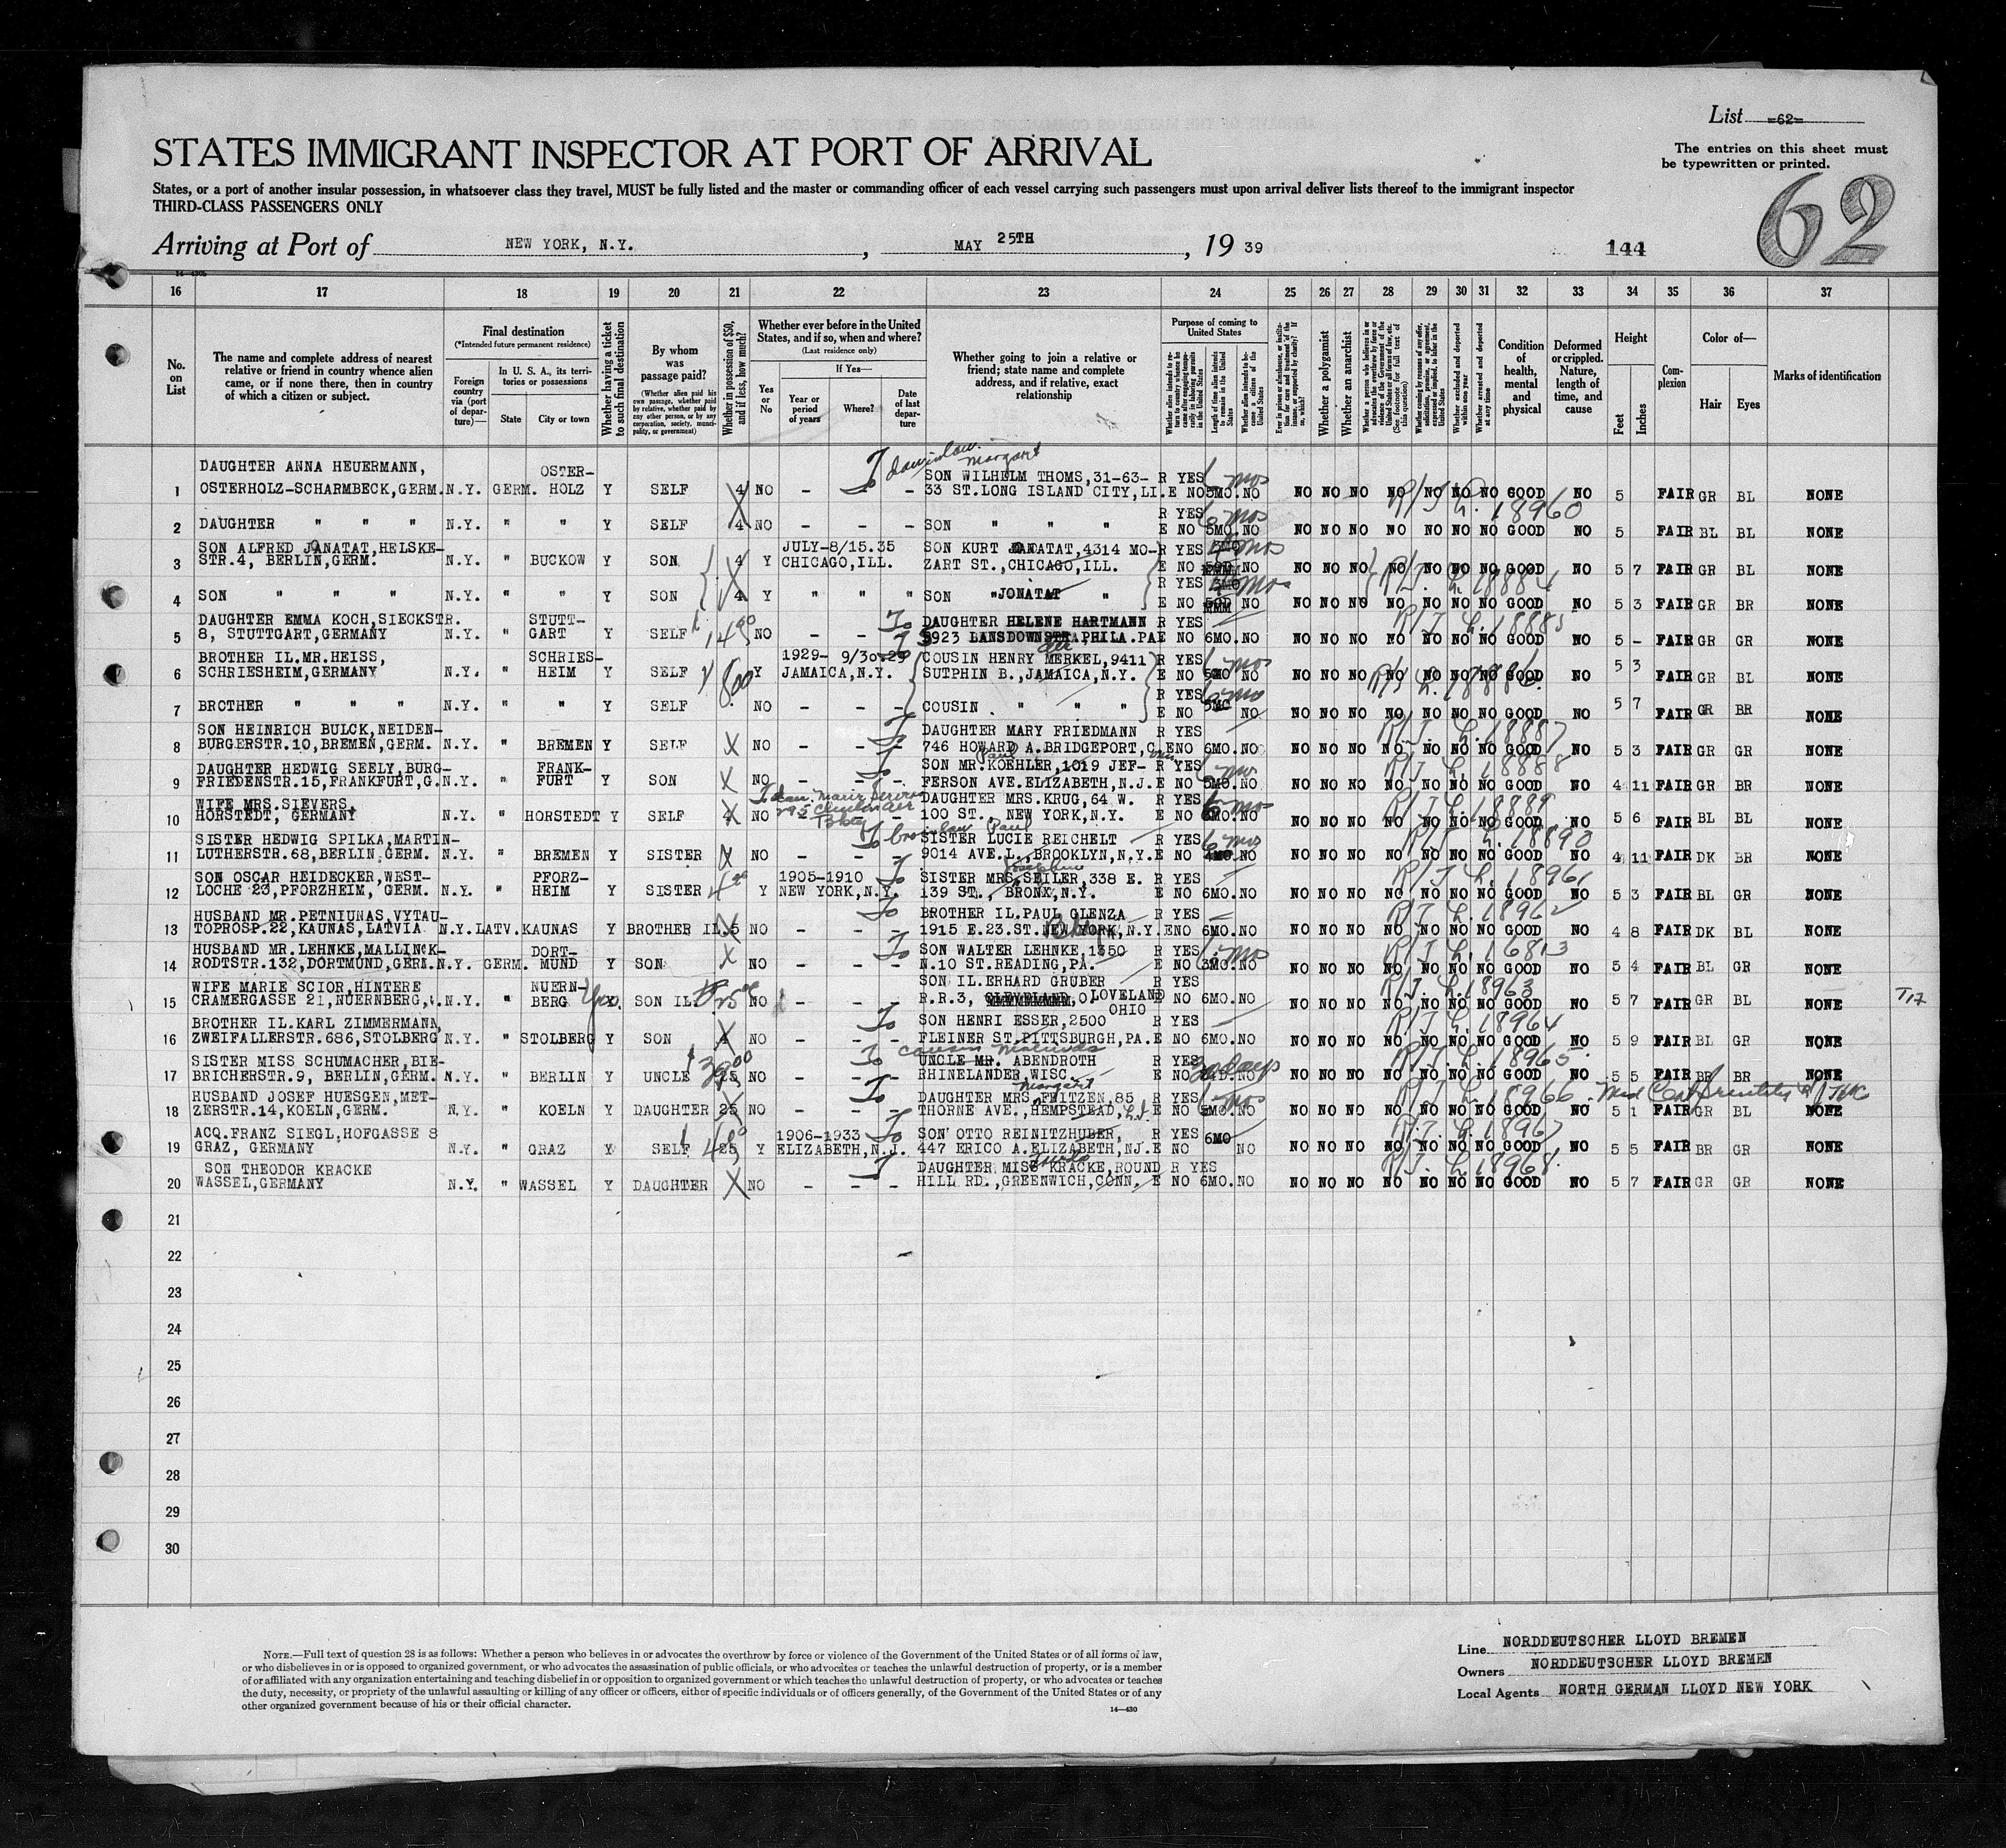 List -62-
STATES IMMIGRANT INSPECTOR AT PORT OF ARRIVAL
The entries on this sheet must
be typewritten or printed.
States, or a port of another insular possession, in whatsoever class they travel, MUST be fully listed and the master or commanding officer of each vessel carrying such passengers must upon arrival deliver lists thereof to the immigrant inspector
THIRD-CLASS PASSENGERS ONLY
62
Arriving at Port of NEW YORK, N.Y., MAY 25TH, 19 39 144
16 17 18 19 20 21 22 23 24 25 26 27 28 29 30 31 32 33 34 35 36 37
No. on List
The name and complete address of nearest relative or friend in country whence alien came, or if none there, then in country of which a citizen or subject.
Final destination
(*Intended future permanent residence)
Foreign country via (port of departure)—
In U. S. A., its territories or possessions
State
City or town
Whether having a ticket to such final destination
By whom was passage paid?
(Whether alien paid his own passage, whether paid by relative, whether paid by any other person, or by any corporation, society, municipality, or government)
Whether in possession of $50, and if less, how much?
Whether ever before in the United States, and if so, when and where?
(Last residence only)
Yes or No
If Yes—
Year or period of years
Where?
Date of last departure
Whether going to join a relative or friend; state name and complete address, and if relative, exact relationship
Purpose of coming to United States
Length of time alien intends to remain in the United States
Whether alien intends to become a citizen of the United States
Whether a polygamist
Whether an anarchist
Whether excluded and deported within one year
Whether arrested and deported at any time
Condition of health, mental and physical
Deformed or crippled. Nature, length of time, and cause
Height
Feet
Inches
Complexion
Color of—
Hair
Eyes
Marks of identification
DAUGHTER ANNA HEUERMANN, OSTER- SON WILHELM THOMS,31-63- R YES
1 OSTERHOLZ-SCHARMBECK,GERM. N.Y. GERM. HOLZ Y SELF 4 NO - - - 33 ST.LONG ISLAND CITY,LI. E NO 5MO. NO NO NO NO NO NO NO NO GOOD NO 5 FAIR GR BL NONE
R YES 6 mos L.18960
2 DAUGHTER " " " N.Y. " " Y SELF 4 NO - - - SON " " " E NO 5MO. NO NO NO NO NO NO NO NO GOOD NO 5 FAIR BL BL NONE
SON ALFRED JONATAT,HELSKE- JULY-8/15.35 SON KURT JONATAT,4314 MO- R YES
3 STR.4, BERLIN,GERM. N.Y. " BUCKOW Y SON 4 Y CHICAGO,ILL. ZART ST.,CHICAGO,ILL. E NO NO NO NO NO NO NO NO NO GOOD NO 5 7 FAIR GR BL NONE
R YES L.18884
4 SON " " " N.Y. " " Y SON 4 Y " " " SON "JONATAT " E NO NO NO NO NO NO NO NO NO GOOD NO 5 3 FAIR GR BR NONE
DAUGHTER EMMA KOCH,SIECKSTR. STUTT- To DAUGHTER HELENE HARTMANN R YES L.18885
5 8, STUTTGART,GERMANY N.Y. " GART Y SELF NO - - 5923 LANSDOWNSTR.PHILA.PA E NO 6MO. NO NO NO NO NO NO NO NO GOOD NO 5 - FAIR GR GR NONE
BROTHER IL.MR.HEISS, SCHRIES- 1929- 9/30.29 COUSIN HENRY MERKEL,9411 R YES
6 SCHRIESHEIM,GERMANY N.Y. " HEIM Y SELF Y JAMAICA,N.Y. SUTPHIN B.,JAMAICA,N.Y. E NO NO NO NO NO NO NO NO NO GOOD NO 5 3 FAIR GR BL NONE
R YES L.18886
7 BROTHER " " " N.Y. " " Y SELF NO - - - COUSIN " " " E NO NO NO NO NO NO NO NO NO GOOD NO 5 7 FAIR GR BR NONE
SON HEINRICH BULCK,NEIDEN- DAUGHTER MARY FRIEDMANN R YES L.18887
8 BURGERSTR.10,BREMEN,GERM. N.Y. " BREMEN Y SELF NO - - 746 HOWARD A.BRIDGEPORT,C. E NO 6MO. NO NO NO NO NO NO NO NO GOOD NO 5 3 FAIR GR GR NONE
DAUGHTER HEDWIG SEELY,BURG- FRANK- SON MR.KOEHLER,1019 JEF- R YES L.18888
9 FRIEDENSTR.15,FRANKFURT,G. N.Y. " FURT Y SON NO - - - FERSON AVE.ELIZABETH,N.J. E NO 5MO. NO NO NO NO NO NO NO NO GOOD NO 4 11 FAIR GR BR NONE
WIFE MRS.SIEVERS, DAUGHTER MRS.KRUG,64 W. R YES L.18889
10 HORSTEDT, GERMANY N.Y. " HORSTEDT Y SELF 4 NO 100 ST., NEW YORK,N.Y. E NO NO NO NO NO NO NO NO NO GOOD NO 5 6 FAIR BL BL NONE
SISTER HEDWIG SPILKA,MARTIN- SISTER LUCIE REICHELT R YES 6 mos L.18890
11 LUTHERSTR.68,BERLIN,GERM. N.Y. " BREMEN Y SISTER NO - - - 9014 AVE.L.,BROOKLYN,N.Y. E NO NO NO NO NO NO NO NO NO GOOD NO 4 11 FAIR DK BR NONE
SON OSCAR HEIDECKER,WEST- PFORZ- 1905-1910 SISTER MRS.SEILER,338 E. R YES L.18961
12 LOCHE 23,PFORZHEIM, GERM. N.Y. " HEIM Y SISTER Y NEW YORK,N.Y. 139 ST., BRONX,N.Y. E NO 6MO. NO NO NO NO NO NO NO NO GOOD NO 5 3 FAIR BL GR NONE
HUSBAND MR.PETNIUNAS,VYTAU- To BROTHER IL.PAUL GLENZA R YES L.18962
13 TOPROSP.22,KAUNAS,LATVIA N.Y. LATV. KAUNAS Y BROTHER IL. 5 NO - - - 1915 E.23.ST.NEW YORK,N.Y. E NO 6MO. NO NO NO NO NO NO NO NO GOOD NO 4 8 FAIR DK BL NONE
HUSBAND MR.LEHNKE,MALLINCK- DORT- To SON WALTER LEHNKE,1350 R YES L.16813
14 RODTSTR.132,DORTMUND,GERM. N.Y. GERM. MUND Y SON NO - - - N.10 ST.READING,PA. E NO 3MO. NO NO NO NO NO NO NO NO GOOD NO 5 4 FAIR BL GR NONE
WIFE MARIE SCIOR,HINTERE NUERN- SON IL.ERHARD GRUBER R YES L.18963
15 CRAMERGASSE 21,NUERNBERG, N.Y. " BERG SON IL. NO - - - R.R.3, CLEVELAND,O. LOVELAND OHIO E NO 6MO. NO NO NO NO NO NO NO NO GOOD NO 5 7 FAIR GR BL NONE T17
BROTHER IL.KARL ZIMMERMANN, To SON HENRI ESSER,2500 R YES L.18964
16 ZWEIFALLERSTR.686,STOLBERG N.Y. " STOLBERG Y SON NO - - - FLEINER ST.PITTSBURGH,PA. E NO 6MO. NO NO NO NO NO NO NO NO GOOD NO 5 9 FAIR BL GR NONE
SISTER MISS SCHUMACHER,BIE- To UNCLE MR. ABENDROTH R YES L.18965
17 BRICHERSTR.9, BERLIN,GERM. N.Y. " BERLIN Y UNCLE NO - - - RHINELANDER,WISC. E NO 30 days NO NO NO NO NO NO NO NO GOOD NO 5 5 FAIR BR BR NONE
HUSBAND JOSEF HUESGEN,MET- To DAUGHTER MRS.FRITZEN,85 R YES L.18966
18 ZERSTR.14,KOELN,GERM. N.Y. " KOELN Y DAUGHTER 25 NO - - - THORNE AVE.,HEMPSTEAD, L.I. E NO NO NO NO NO NO NO NO NO GOOD NO 5 1 FAIR GR BL NONE
ACQ.FRANZ SIEGL,HOFGASSE 8 1906-1933 SON OTTO REINITZHUBER, R YES 6MO L.18967
19 GRAZ, GERMANY N.Y. " GRAZ Y SELF 25 Y ELIZABETH,N.J. 447 ERICO A.ELIZABETH,NJ. E NO NO NO NO NO NO NO NO NO GOOD NO 5 5 FAIR BR GR NONE
SON THEODOR KRACKE DAUGHTER MISS KRACKE,ROUND R YES L.18968
20 WASSEL,GERMANY N.Y. " WASSEL Y DAUGHTER NO - - - HILL RD.,GREENWICH,CONN. E NO 6MO. NO NO NO NO NO NO NO NO GOOD NO 5 7 FAIR GR GR NONE
21
22
23
24
25
26
27
28
29
30
NOTE.—Full text of question 28 is as follows: Whether a person who believes in or advocates the overthrow by force or violence of the Government of the United States or of all forms of law,
or who disbelieves in or is opposed to organized government, or who advocates the assassination of public officials, or who advocates or teaches the unlawful destruction of property, or is a member
of or affiliated with any organization entertaining and teaching disbelief in or opposition to organized government or which teaches the unlawful destruction of property, or who advocates or teaches
the duty, necessity, or propriety of the unlawful assaulting or killing of any officer or officers, either of specific individuals or of officers generally, of the Government of the United States or of any
other organized government because of his or their official character.
14—430
Line NORDDEUTSCHER LLOYD BREMEN
Owners NORDDEUTSCHER LLOYD BREMEN
Local Agents NORTH GERMAN LLOYD NEW YORK